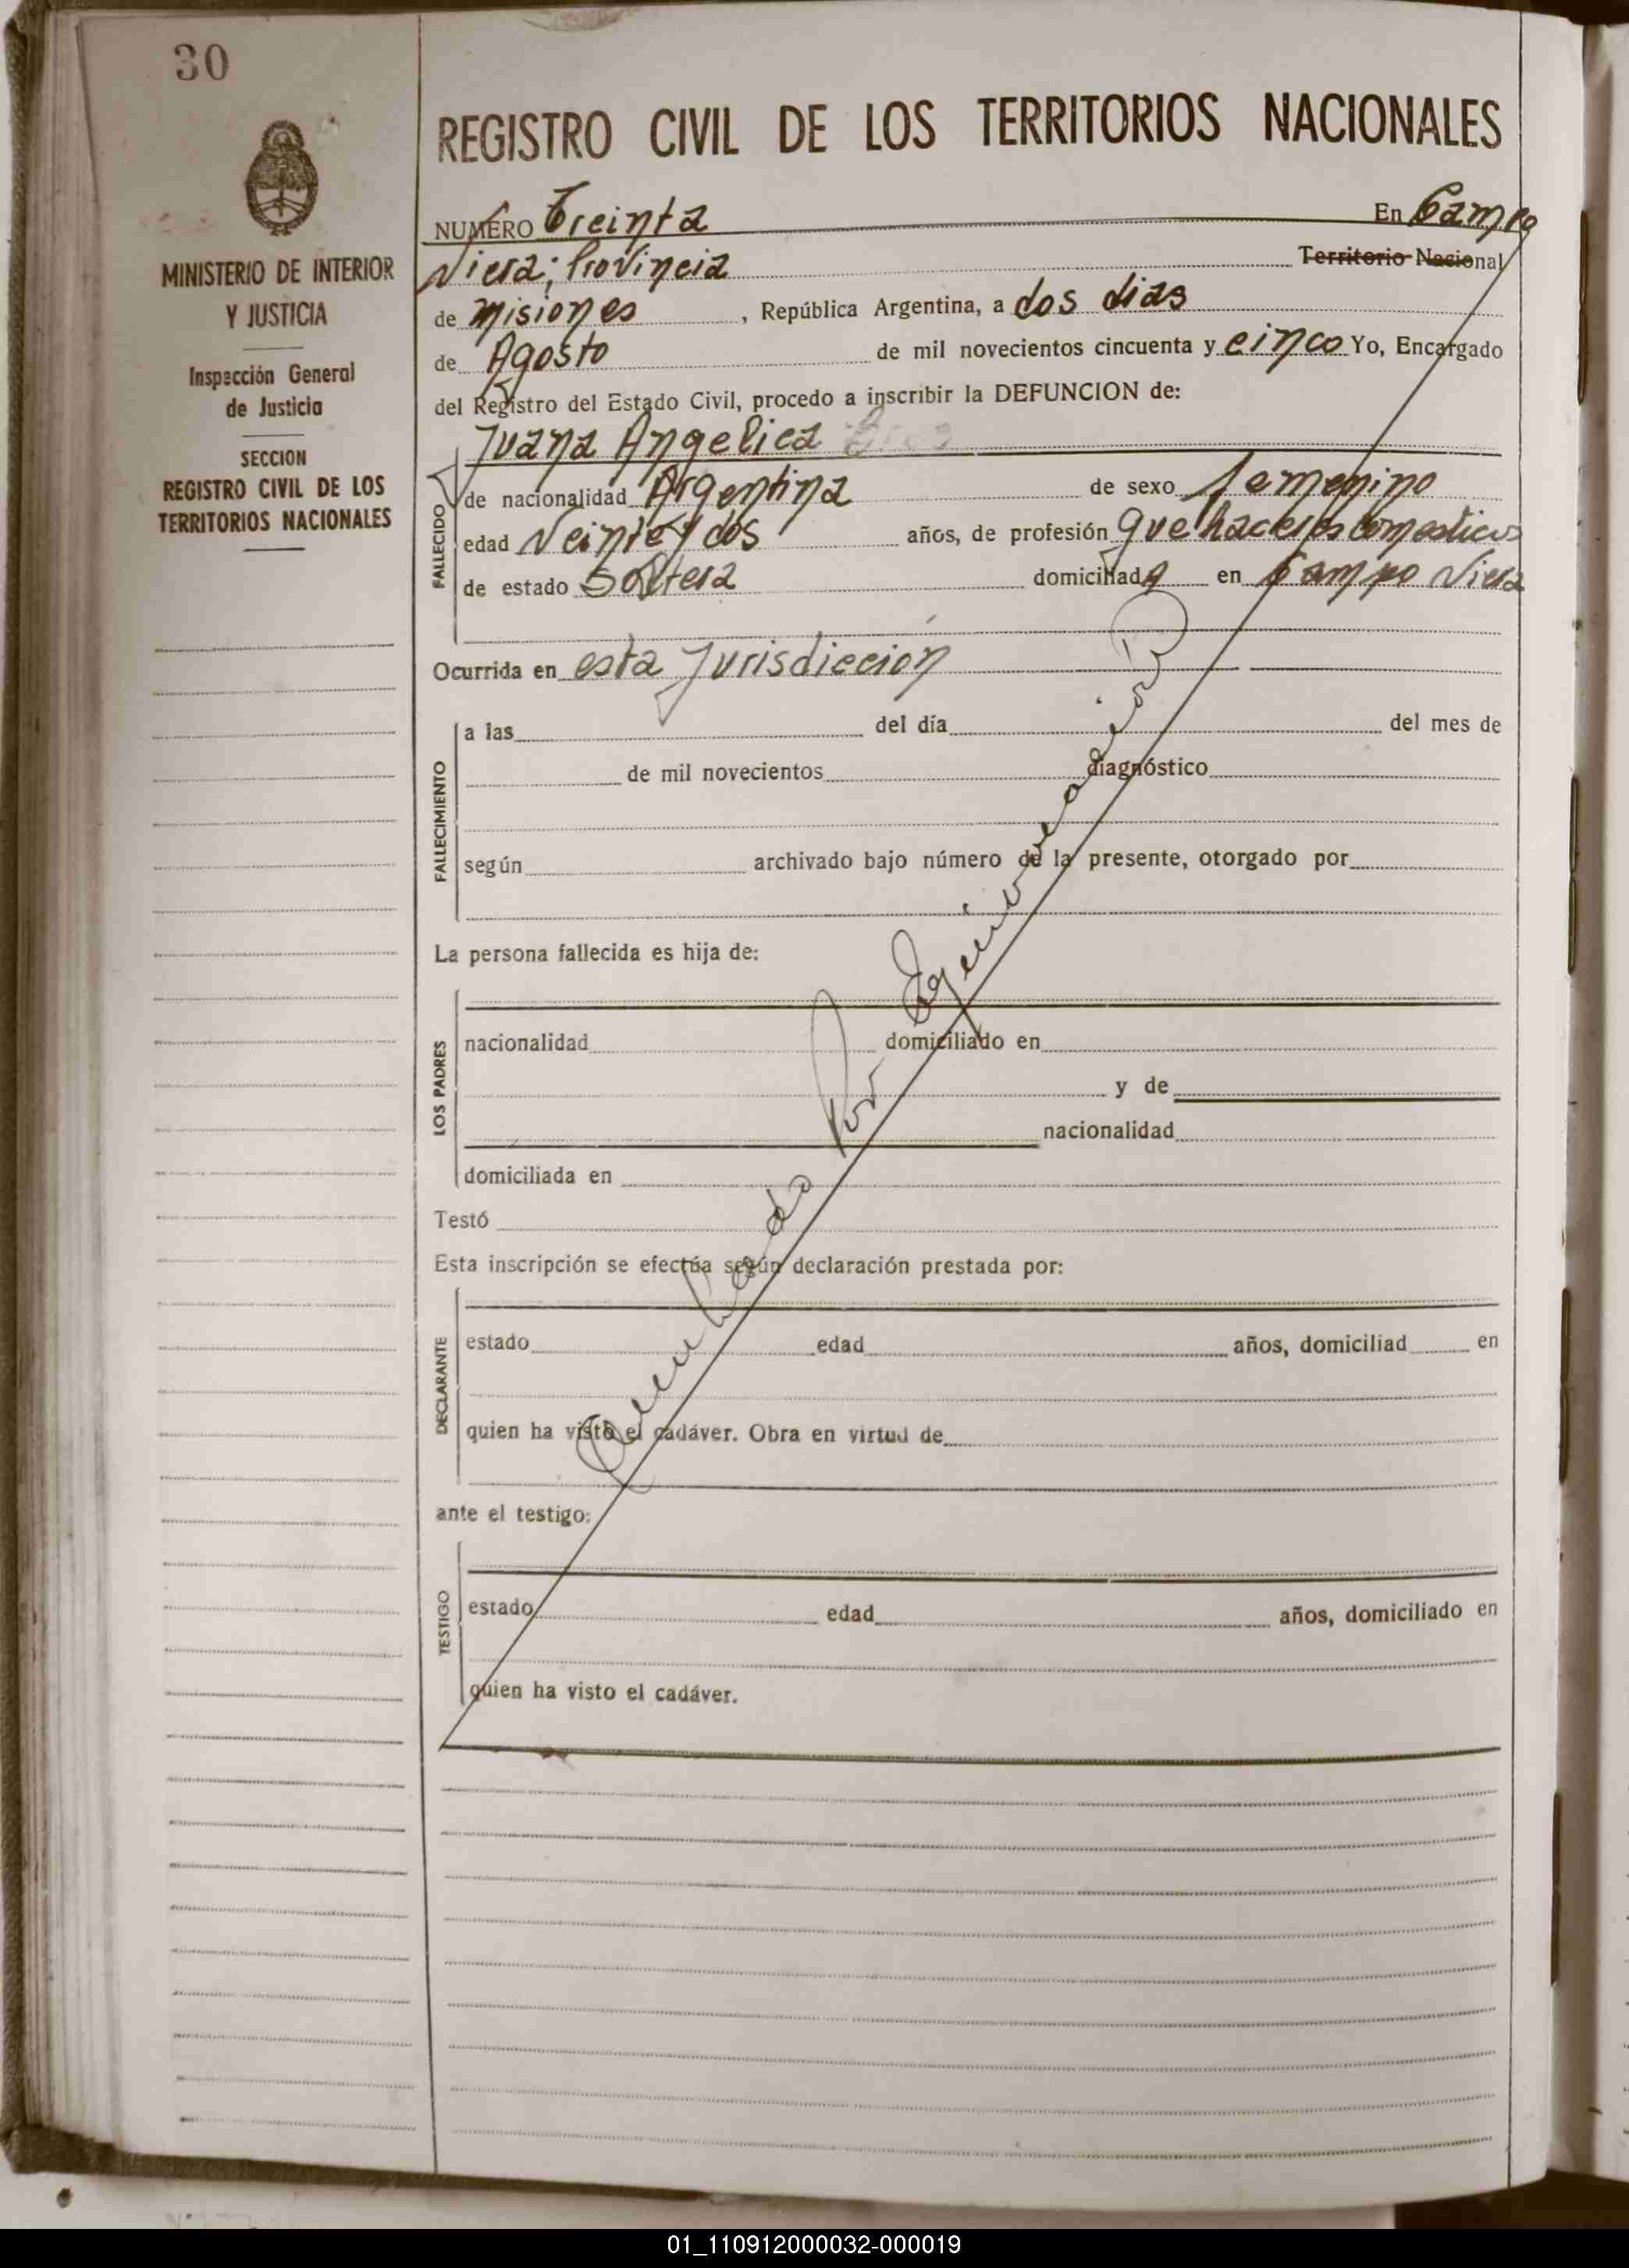 30
REGISTRO CIVIL DE LOS TERRITORIOS NACIONALES
MINISTERIO DE INTERIOR
Y JUSTICIA
Inspección General
de Justicia
SECCION
REGISTRO CIVIL DE LOS
TERRITORIOS NACIONALES
NUMERO Treinta En Campo
Viera; Provincia Territorio Nacional
de Misiones, República Argentina, a dos dias
de Agosto de mil novecientos cincuenta y cinco Yo, Encargado
del Registro del Estado Civil, procedo a inscribir la DEFUNCION de:
Juana Angelica
FALLECIDO
de nacionalidad Argentina de sexo femenino
edad Veinte y dos años, de profesión quehaceres domesticos
de estado Soltera domiciliada en Campo Viera
Ocurrida en esta Jurisdiccion
FALLECIMIENTO
a las del día del mes de
de mil novecientos diagnóstico
según archivado bajo número de la presente, otorgado por
La persona fallecida es hija de:
LOS PADRES
nacionalidad domiciliado en
y de
nacionalidad
domiciliada en
Testó
Esta inscripción se efectúa según declaración prestada por:
DECLARANTE
estado edad años, domiciliad en
quien ha visto el cadáver. Obra en virtud de
ante el testigo:
TESTIGO
estado edad años, domiciliado en
quien ha visto el cadáver.
Por
01_110912000032-000019